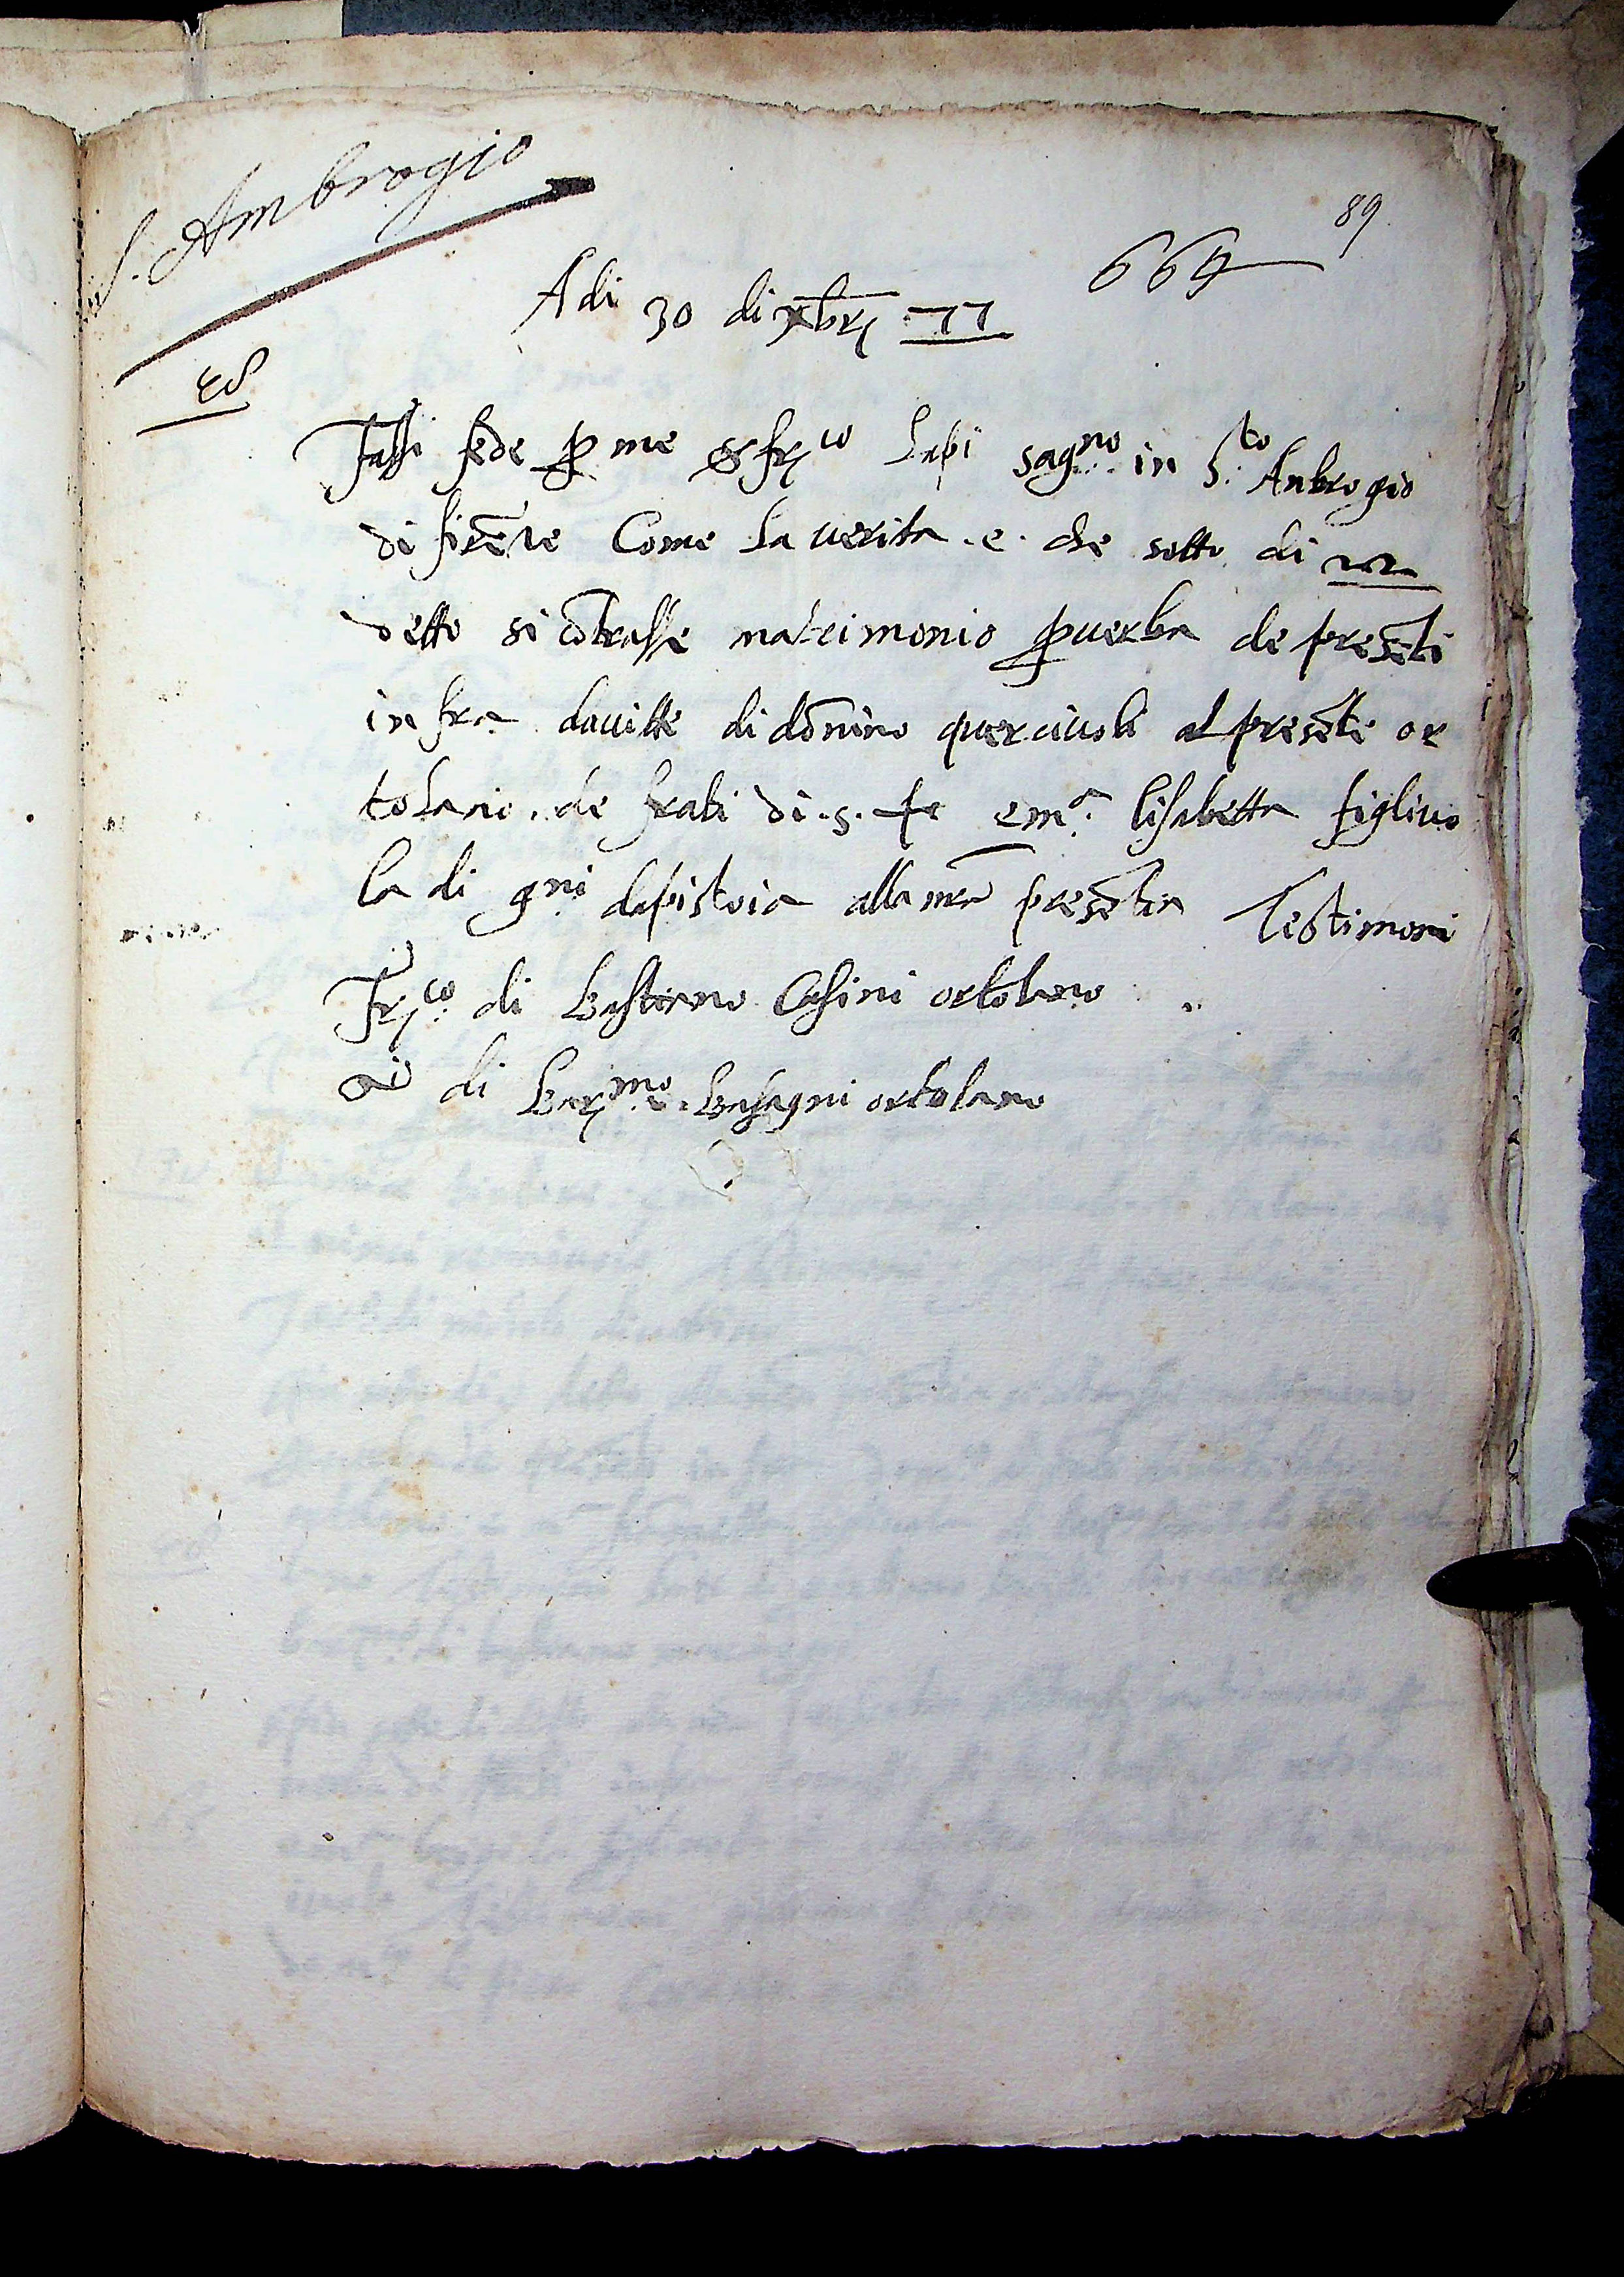 S. Ambrogio
89
669
Adi 30 di xbrẽ 77
Fassi fede p me fr.co Lapi sag.no in S.to Anbrogio
di firẽze Come la verita .e. che sotto di
detto si cõtrasse matrimonio p verba de presẽti
infra davitte di dõnino querciuoli al presẽte or
tolano .de frati di .s. + e m.a lisabetta figliuo
la di gni dapistoia alla mia presẽtia Testimoni
Fr.co di bastiano Casini ortolano
di bar.mo basagni ortolano